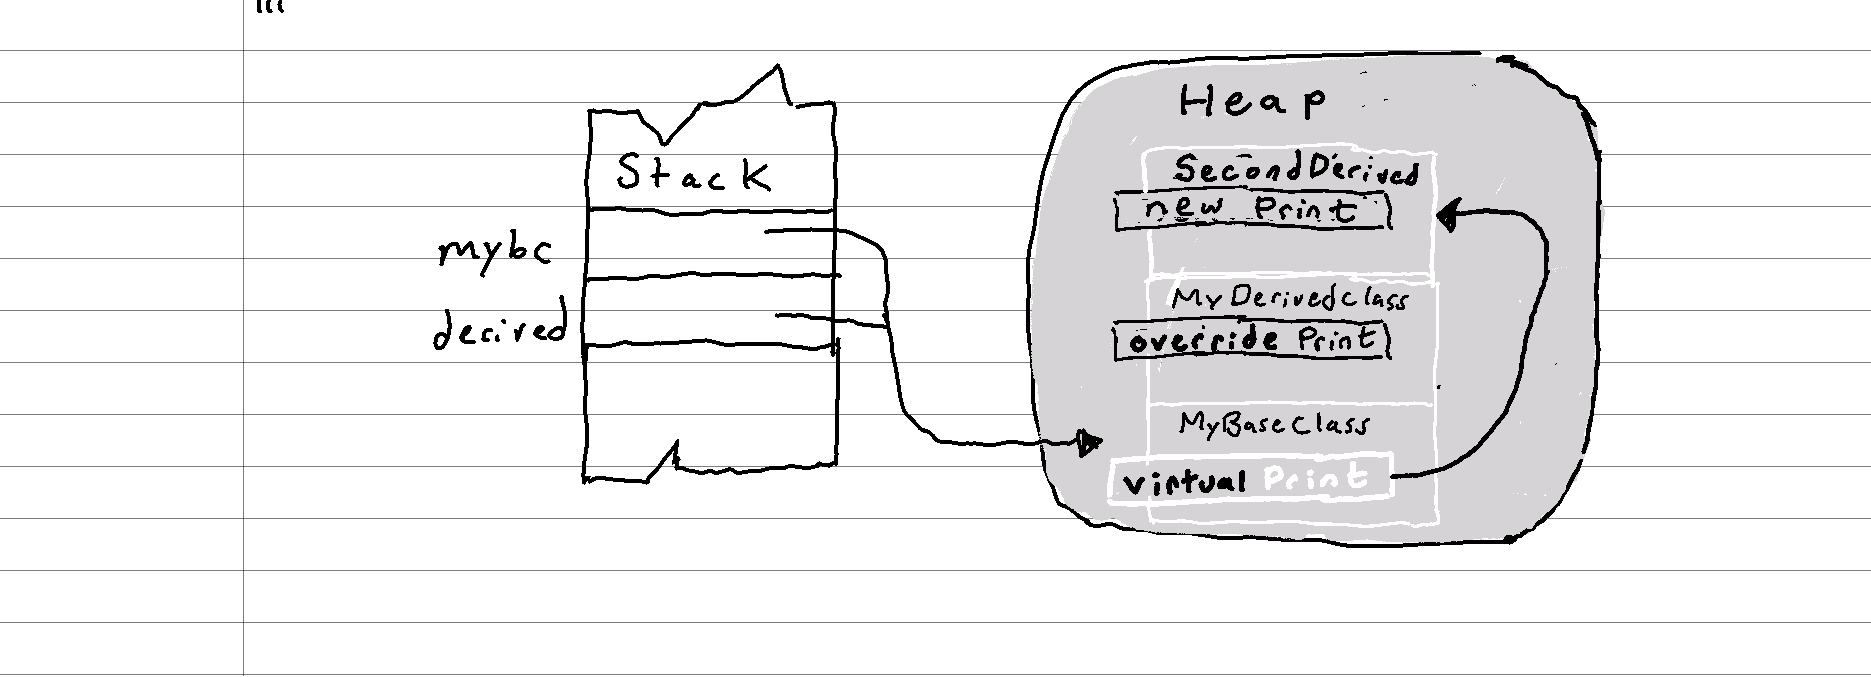 Stack
mybc
derived
Heap
SecondDerived
new Print
MyDerivedclass
override Print
MyBaseClass
virtual Print